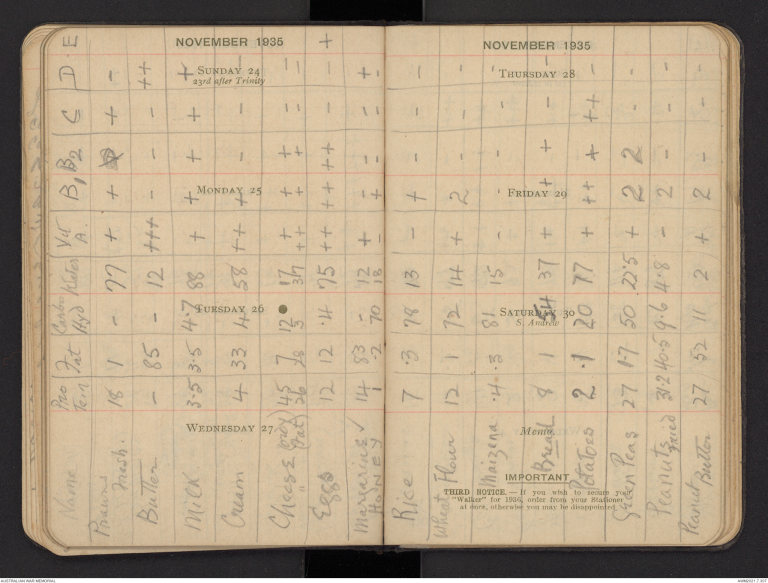 NOVEMBER 1935
SUNDAY 24
23rd after Trinity
MONDAY 25
TUESDAY 26
WEDNESDAY 27
NOVEMBER 1935
THURSDAY 28
FRIDAY 29
SATURDAY 30
S. Andrew
Memo.
IMPORTANT
THIRD NOTICE.—If you wish to secure your
"Walker" for 1936, order from your Stationer
at once, otherwise you may be disappointed.
Name Protein Fat Carbo Hyd Water Vit A. B1 B2 C D E
Prawns fresh. 18 1 - 77 + + + -
Butter - 85 - 12 +++ - - - ++
Milk 3.5 3.5 4.7 88 + + + + +
Cream 4 33 4 58 ++ + - - -
Cheese (dry) 45 7 12 17 ++ + + - -
" (fat) 26 28 3 37 ++ + + - -
Eggs 12 12 .4 75 ++ ++ ++ - - +
Margarine 14 83 - 12 + - - - +
Honey 1 .2 70 18 - + - - -
Rice 7 .3 78 13 - + - - -
Wheat Flour 12 1 72 14 + 2 - - -
Maizena .4 .3 81 15 - - - - -
Bread 8 1 54 37 + + + - -
Potatoes 2 .1 20 77 + ++ + ++ -
Green Peas 27 1.7 50 22.5 + 2 2 - -
Peanuts fried 31.2 40.5 9.6 4.8 - 2 - - -
Peanut Butter 27 52 11 2 + 2 - - -
AUSTRALIAN WAR MEMORIAL